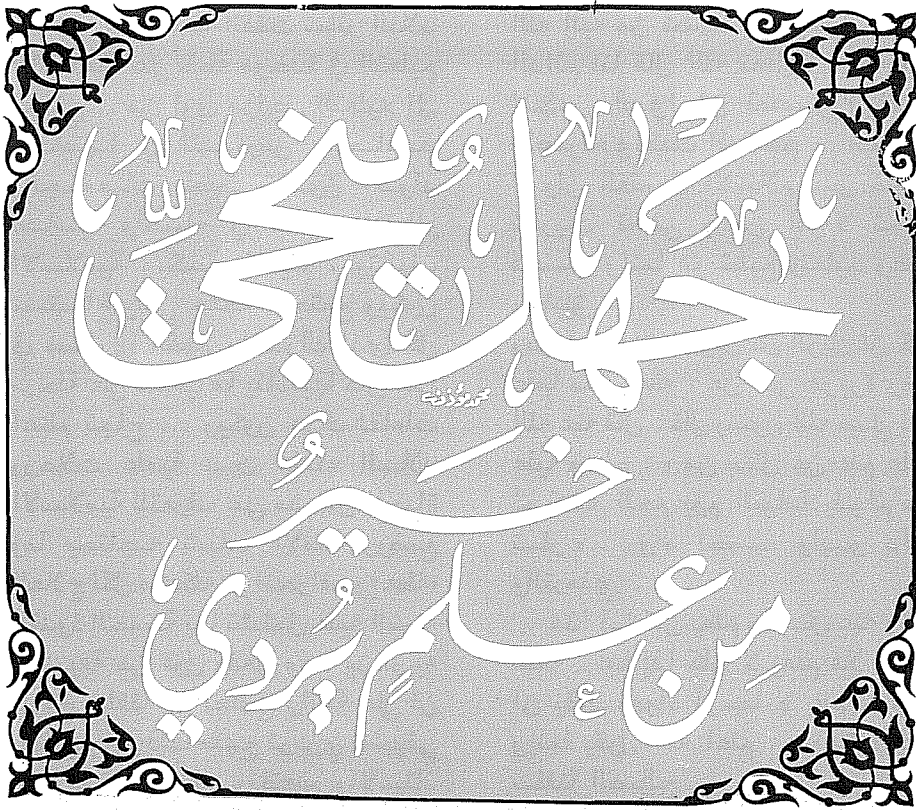 جَهلٌ يُنجِّي
خَيرٌ
مِن علمٍ يُردي